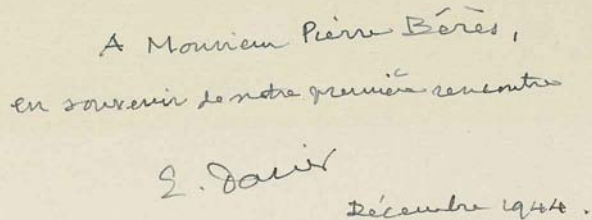 A Monsieur Pierre Bérès,
en souvenir de notre première rencontre
Décembre 1944.